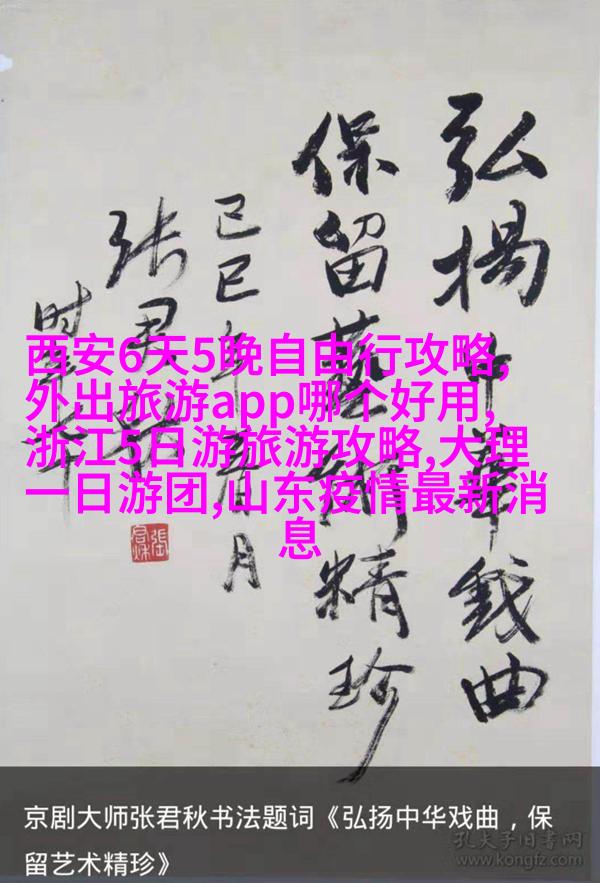 弘揚中華戲曲
保留藝術精珍
己巳年春月
张君秋
时年
西安6天5晚自由行攻略,
外出旅游app哪个好用,
浙江5日游旅游攻略,大理
一日游团,山东疫情最新消
息
京剧大师张君秋书法题词《弘扬中华戏曲，保
留艺术精珍》
孔夫子旧书网
www.kongfz.com